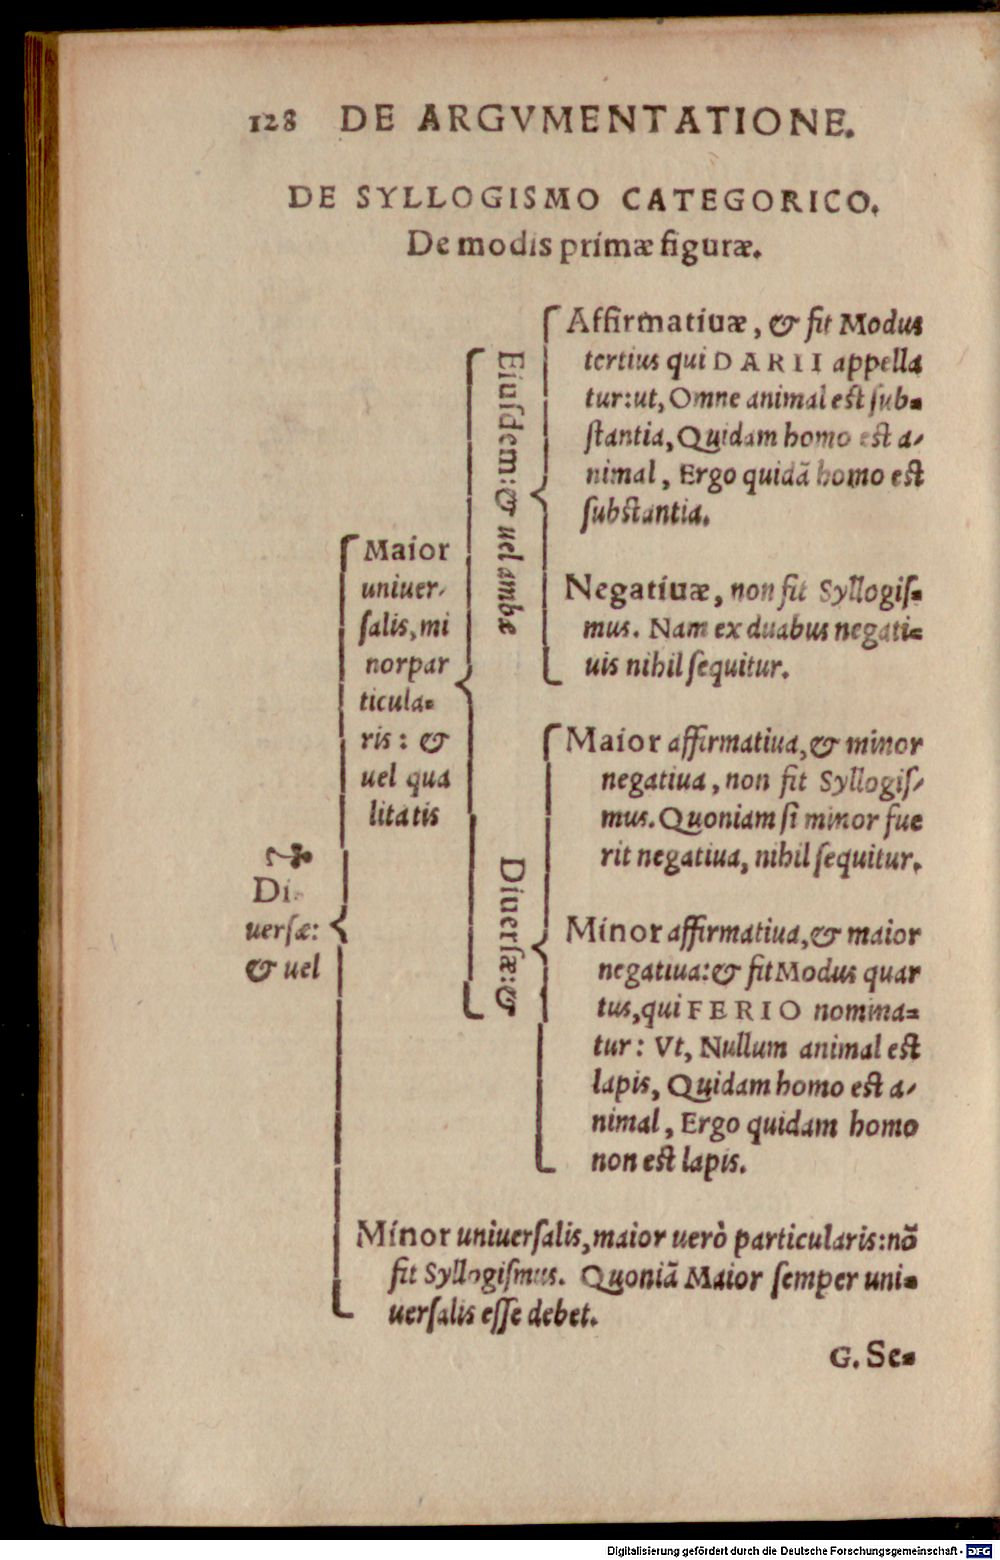 128 DE ARGVMENTATIONE.
DE SYLLOGISMO CATEGORICO.
De modis primæ figuræ.
Di
uersæ:
& uel
Maior
uniuer-
salis, mi
nor par
ticula-
ris: &
uel qua
litatis
Eiusdem: & uel ambæ
Affirmatiuæ, & fit Modus
tertius qui DARII appella
tur: ut, Omne animal est sub-
stantia, Quidam homo est a-
nimal, Ergo quidã homo est
substantia.
Negatiuæ, non fit Syllogis-
mus. Nam ex duabus negati-
uis nihil sequitur.
Diuersæ: &
Maior affirmatiua, & minor
negatiua, non fit Syllogis-
mus. Quoniam si minor fue
rit negatiua, nihil sequitur.
Minor affirmatiua, & maior
negatiua: & fit Modus quar
tus, qui FERIO nomina-
tur: Vt, Nullum animal est
lapis, Quidam homo est a-
nimal, Ergo quidam homo
non est lapis.
Minor uniuersalis, maior uerò particularis: nõ
fit Syllogismus. Quoniã Maior semper uni-
uersalis esse debet.
G. Se-
Digitalisierung gefördert durch die Deutsche Forschungsgemeinschaft - DFG